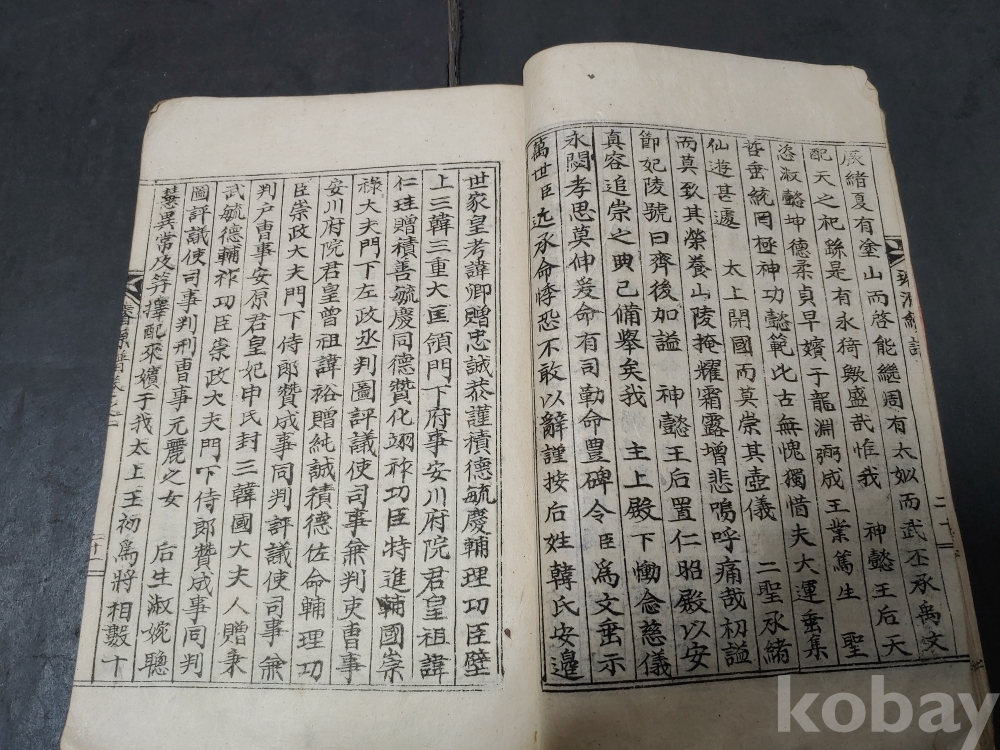 辰緖夏有塗山而啓能繼周有太姒而武丕承禹文
配天之祀緜是有永猗歟盛哉惟我 神懿王后天
恣淑懿坤德柔貞早嬪于龍淵弼成王業篤生 聖
哲垂統罔極神功懿範比古無愧獨惜夫大運垂集
仙遊甚遽 太上開國而莫崇其壺儀 二聖承緖
而莫致其榮養山陵掩耀霜露增悲嗚呼痛哉初謚
節妃陵號曰齊後加謚 神懿王后置仁昭殿以安
眞容追崇之典已備擧矣我 主上殿下慟念慈儀
永閟孝思莫伸爰命有司勒命豊碑令臣爲文垂示
萬世臣近承命悸恐不敢以辭謹按后姓韓氏安邊
世家皇考諱卿贈忠誠恭謹積德毓慶輔理功臣壁
上三韓三重大匡領門下府事安川府院君皇祖諱
仁珪贈積善毓慶同德贊化翊祚功臣特進輔國崇
祿大夫門下左政丞判圖評議使司事兼判吏曹事
安川府院君皇曾祖諱裕贈純誠積德佐命輔理功
臣崇政大夫門下侍郞贊成事同判評議使司事兼
判戶曹事安原君皇妣申氏封三韓國大夫人贈秉
武毓德輔祚功臣崇政大夫門下侍郞贊成事同判
圖評議使司事判刑曹事元麗之女 后生淑婉聰
慧異常及笄擇配來嬪于我太上王初爲將相數十
二十
kobay